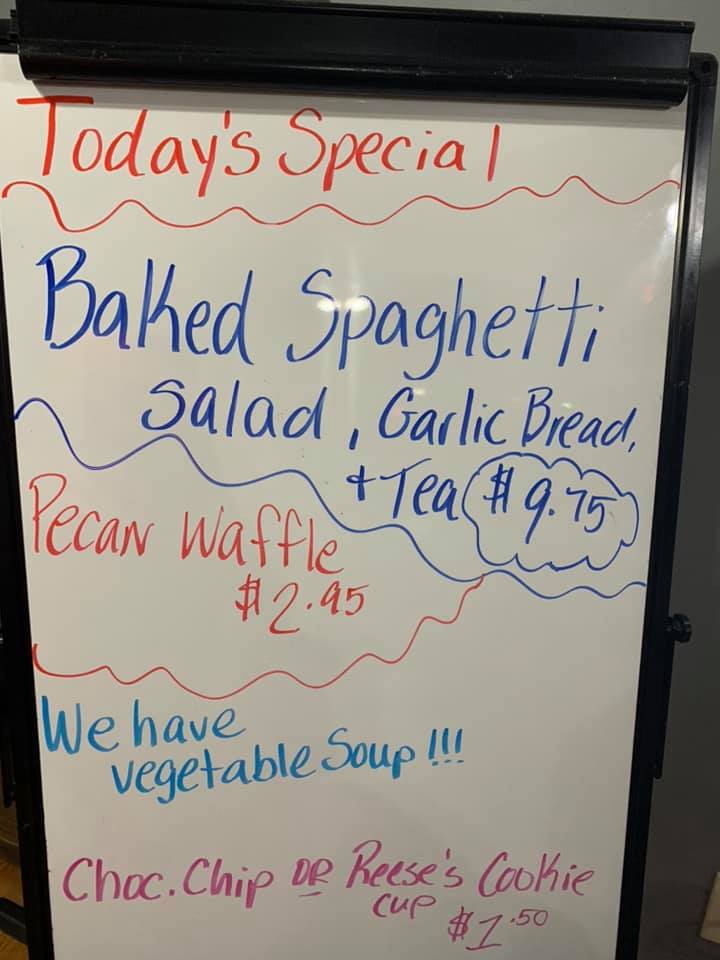 Today's Special
Baked Spaghetti
Salad, Garlic Bread,
+ Tea $9.75
Pecan Waffle
$2.95
We have
vegetable Soup!!!
Choc. Chip OR Reese's Cookie
cup $1.50